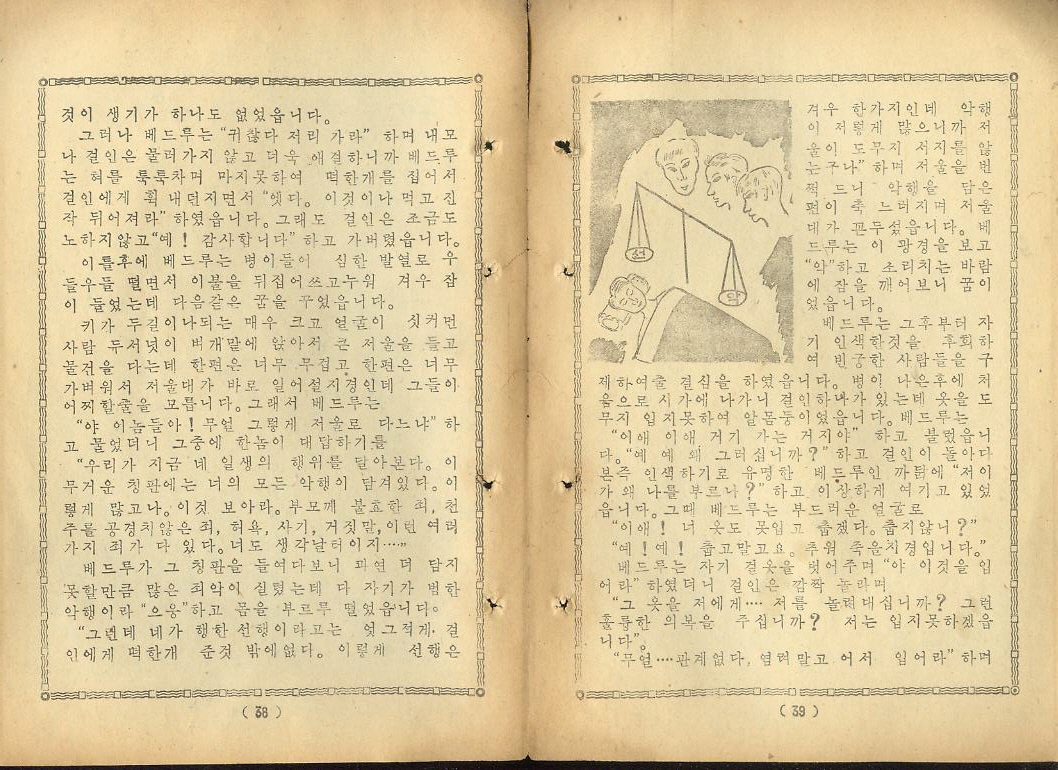 것이 생기가 하나도 없었읍니다.
그러나 베드루는 “귀찮다 저리 가라” 하며 내모
나 걸인은 물러가지 않고 더욱 애결하니까 베드루
는 혀를 툭툭차며 마지못하여 떡한개를 집어서
걸인에게 획 내던지면서 “앳다. 이것이나 먹고 진
작 뒤어져라” 하였읍니다. 그래도 걸인은 조금도
노하지않고 “예! 감사합니다” 하고 가버렸읍니다.
이틀후에 베드루는 병이들어 심한 발열로 우
들우들 떨면서 이불을 뒤집어쓰고누워 겨우 잠
이 들었는데 다음같은 꿈을 꾸었읍니다.
키가 두길이나되는 매우 크고 얼굴이 싯커먼
사람 두서넛이 벼개맡에 앉아서 큰 저울을 들고
물건을 다는데 한편은 너무 무겁고 한편은 너무
가벼워서 저울대가 바로 일어설지경인데 그들이
어찌할줄을 모릅니다. 그래서 베드루는
“야 이놈들아! 무얼 그렇게 저울로 다느냐” 하
고 물었더니 그중에 한놈이 대답하기를
“우리가 지금 네 일생의 행위를 달아본다. 이
무거운 칭판에는 너의 모든 악행이 담겨있다. 이
렇게 많고나. 이것 보아라. 부모께 불효한 죄, 천
주를 공경치않은 죄, 허욕, 사기, 거짓말, 이런 여러
가지 죄가 다 있다. 너도 생각날터이지……”
베드루가 그 칭판을 들여다보니 과연 더 담지
못할만큼 많은 죄악이 실렸는데 다 자기가 범한
악행이라 “으응” 하고 몸을 부르루 떨었읍니다.
“그런데 네가 행한 선행이라고는 엊그적게 걸
인에게 떡한개 준것 밖에없다. 이렇게 선행은
( 38 )
선
악
겨우 한가지인데 악행
이 저렇게 많으니까 저
울이 도무지 서지를 않
는구나” 하며 저울을 번
쩍 드니 악행을 담은
편이 축 느러지며 저울
대가 꼰두섰읍니다. 베
드루는 이 광경을 보고
“악” 하고 소리치는 바람
에 잠을 깨어보니 꿈이
었읍니다.
베드루는 그후부터 자
기 인색한것을 후회하
여 빈궁한 사람들을 구
제하여줄 결심을 하였읍니다. 병이 나은후에 처
음으로 시가에 나가니 걸인하나가 있는데 옷을 도
무지 입지못하여 알몸둥이었읍니다. 베드루는
“이애 이애 거기 가는 거지야” 하고 불렀읍니
다. “예 예 왜 그러십니까?” 하고 걸인이 돌아다
본즉 인색하기로 유명한 베드루인 까닭에 “저이
가 왜 나를 부르나?” 하고 이상하게 여기고 있었
읍니다. 그때 베드루는 부드러운 얼굴로
“이애! 너 옷도 못입고 춥겠다. 춥지않니?”
“예! 예! 춥고말고요. 추워 죽을지경입니다.”
베드루는 자기 겉옷을 벗어주며 “야 이것을 입
어라” 하였더니 걸인은 깜짝 놀라며
“그 옷을 저에게…… 저를 놀려대십니까? 그런
훌륭한 의복을 주십니까? 저는 입지못하겠읍
니다”.
“무얼……관계없다, 염려말고 어서 입어라” 하며
( 39 )